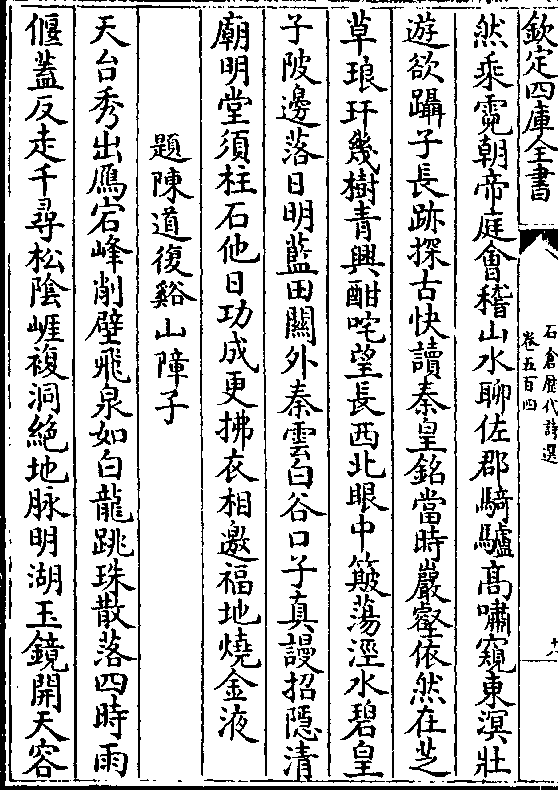 欽定四庫全書
石倉歷代詩選
卷五百四
然乘雲朝帝庭會稽山水聊佐郡騎驢高嘯窺東溟壯
遊欲躡子長跡探古快讀秦皇銘當時巖壑依然在芝
草琅玕幾樹青興酣咤望長西北眼中簸蕩涇水碧皇
子陂邊落日明藍田關外秦雲白谷口子真謾招隱清
廟明堂須柱石他日功成更拂衣相邀福地燒金液
題陳道復谿山障子
天台秀出鴈宕峰削壁飛泉如白龍跳珠散落四時雨
偃蓋反走千尋松陰崕複洞絕地脉明湖玉鏡開天容